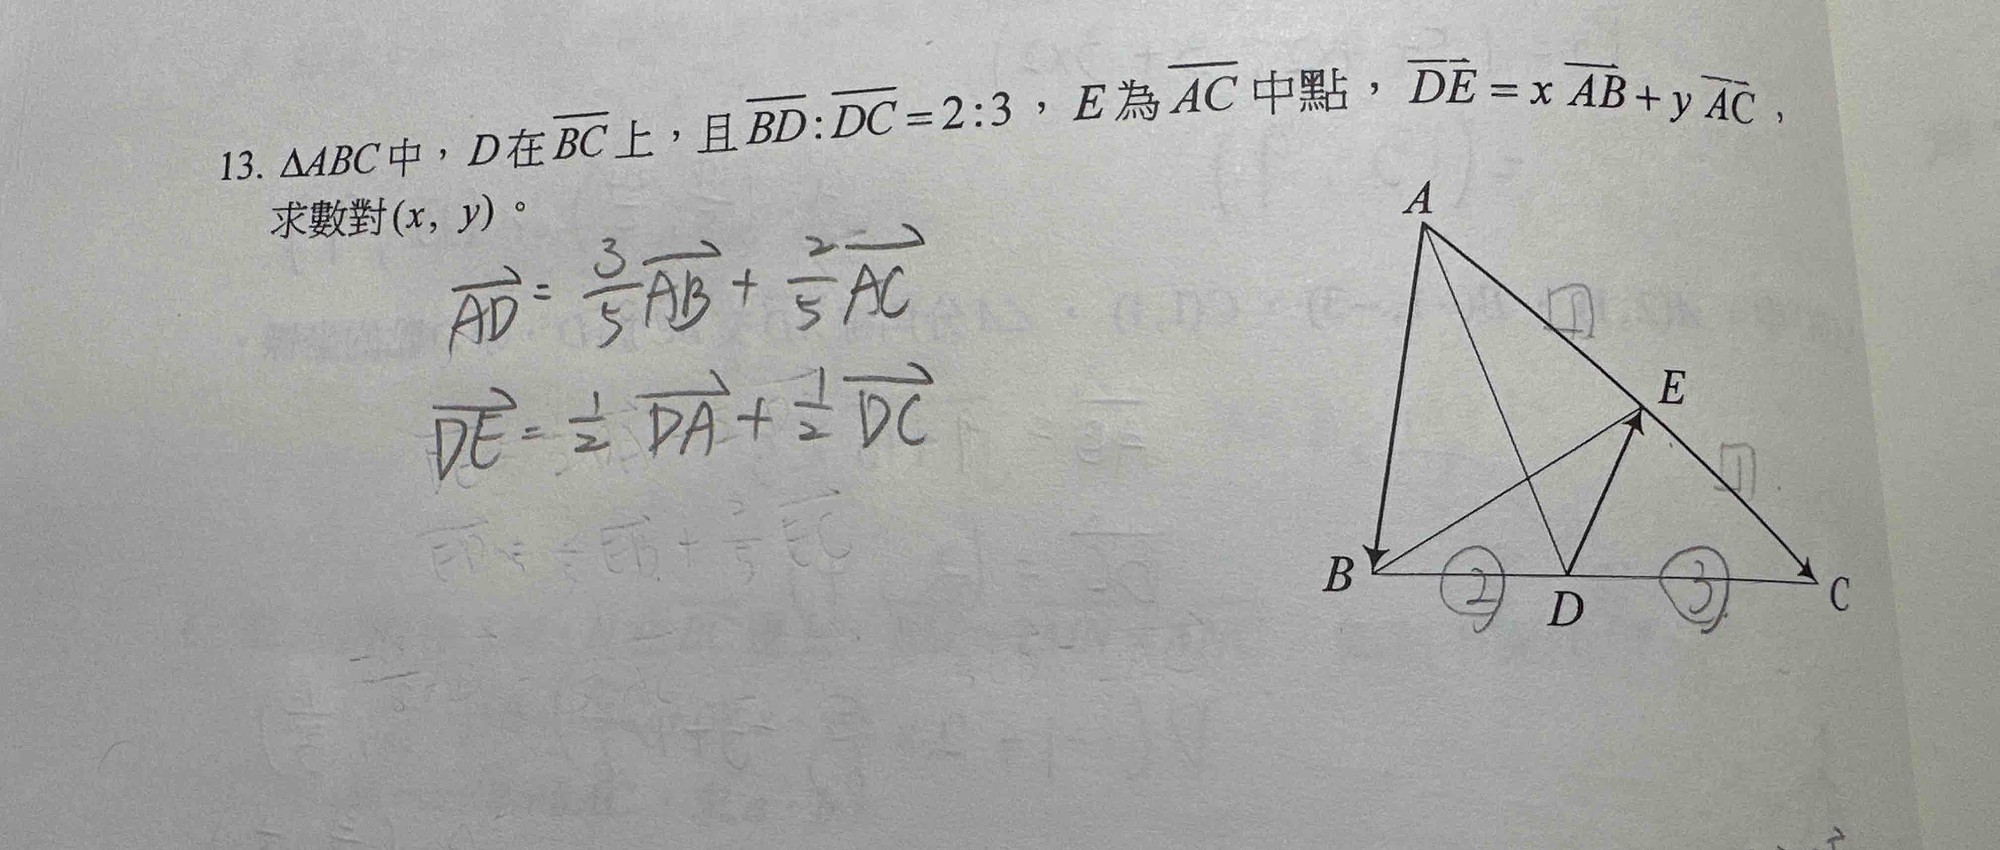 13. ΔABC中，D在BC上，且BD:DC=2:3，E為AC中點，DE=xAB+yAC，
求數對(x, y)。
AD = 3/5 AB + 2/5 AC
DE = 1/2 DA + 1/2 DC
A
1
E
1
B
2
D
3
C